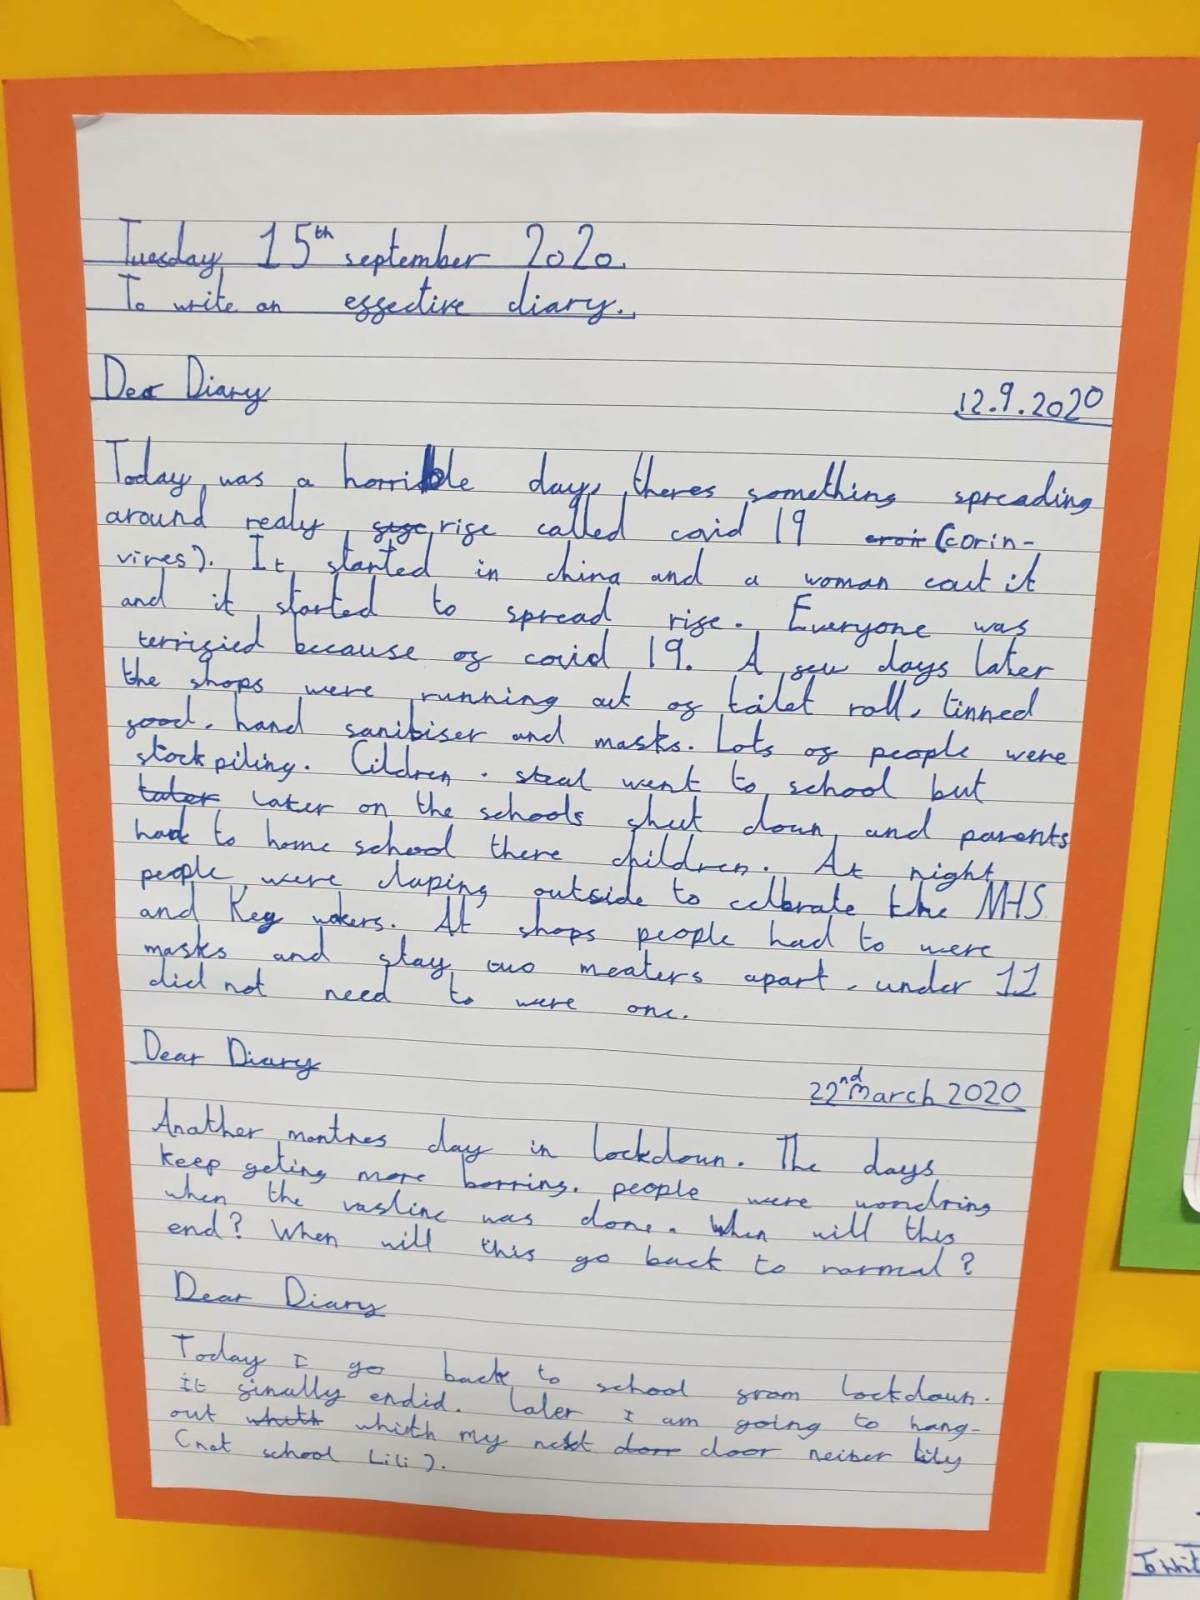 Tuesday 15th september 2020.
To write an effective diary.
Dear Diary
12.9.2020
Today was a horrible day, theres something spreading
around realy rife called covid 19 (corin-
vires). It started in china and a woman cout it
and it started to spread rife. Everyone was
terrified because of covid 19. A few days later
the shops were running out of toilet roll, tinned
food, hand sanitiser and masks. Lots of people were
stock piling. Cildren. went to school but
later on the schools shut down and parents
had to home school there children. At night
people were claping outside to celbrate the NHS
and Key wokers. At shops people had to were
masks and stay two meaters apart, under 11
did not need to were one.
Dear Diary
22nd March 2020
Anather montnes day in lockdown. The days
keep geting more borring. people were wondring
when the vasline was done. When will this
end? When will this go back to normal?
Dear Diary
Today I go back to school from lockdown.
it finally endid. Later I am going to hang-
out whith my next door neiber lily
(not school Lili).